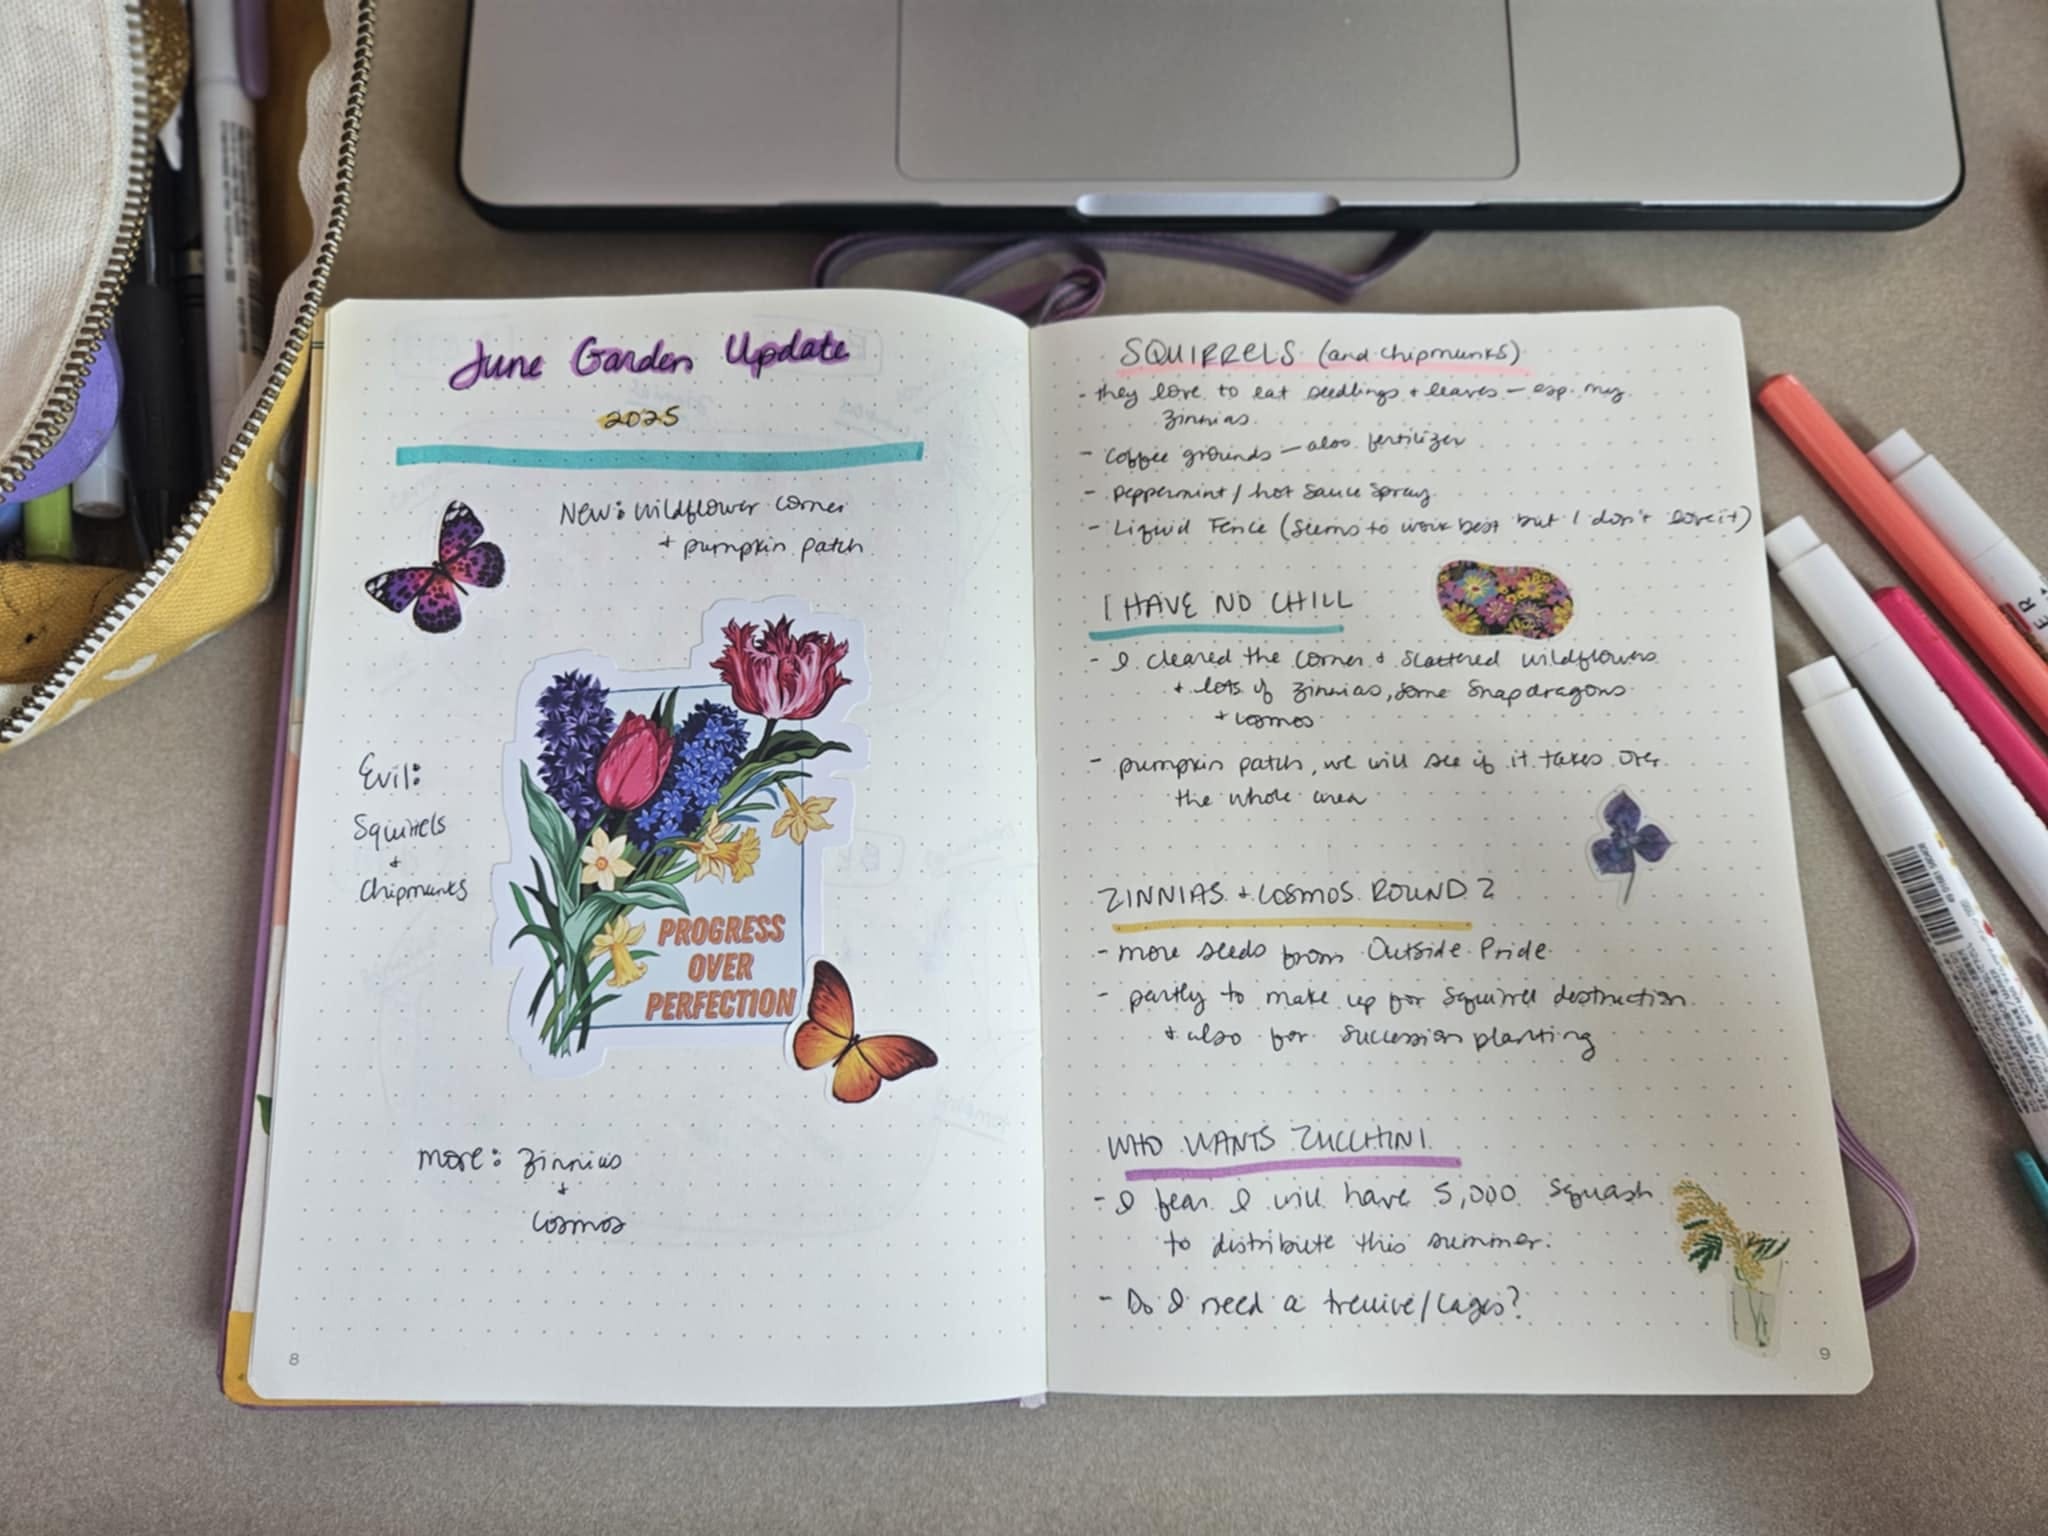 June Garden Update
2025
New: wildflower corner
+ pumpkin patch
Evil:
Squirrels
+
Chipmunks
PROGRESS
OVER
PERFECTION
more: zinnias
+
cosmos
8
SQUIRRELS (and chipmunks)
- they love to eat seedlings + leaves - esp. my
zinnias.
- coffee grounds - also fertilizer
- peppermint / hot sauce spray
- Liquid Fence (seems to work best but I don't love it)
I HAVE NO CHILL
- I cleared the corner + scattered wildflowers
+ lots of zinnias, some snapdragons
+ cosmos
- pumpkin patch, we will see if it takes over
the whole area
ZINNIAS + COSMOS ROUND 2
- more seeds from Outside Pride
- partly to make up for squirrel destruction
+ also for succession planting
WHO WANTS ZUCCHINI
- I fear I will have 5,000 squash
to distribute this summer.
- Do I need a /cages?
9